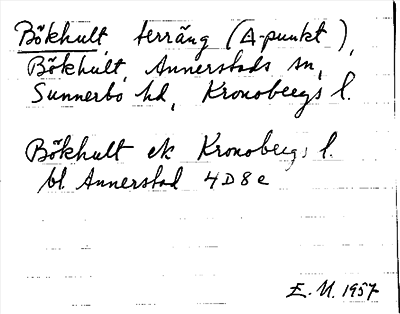 Bökhult, terräng (A-punkt),
Bökhult, Annerstads sn,
Sunnerbo hd, Kronobergs l.
Bökhult ek Kronobergs l.
bl Annerstad 4D8e
E.M. 1957